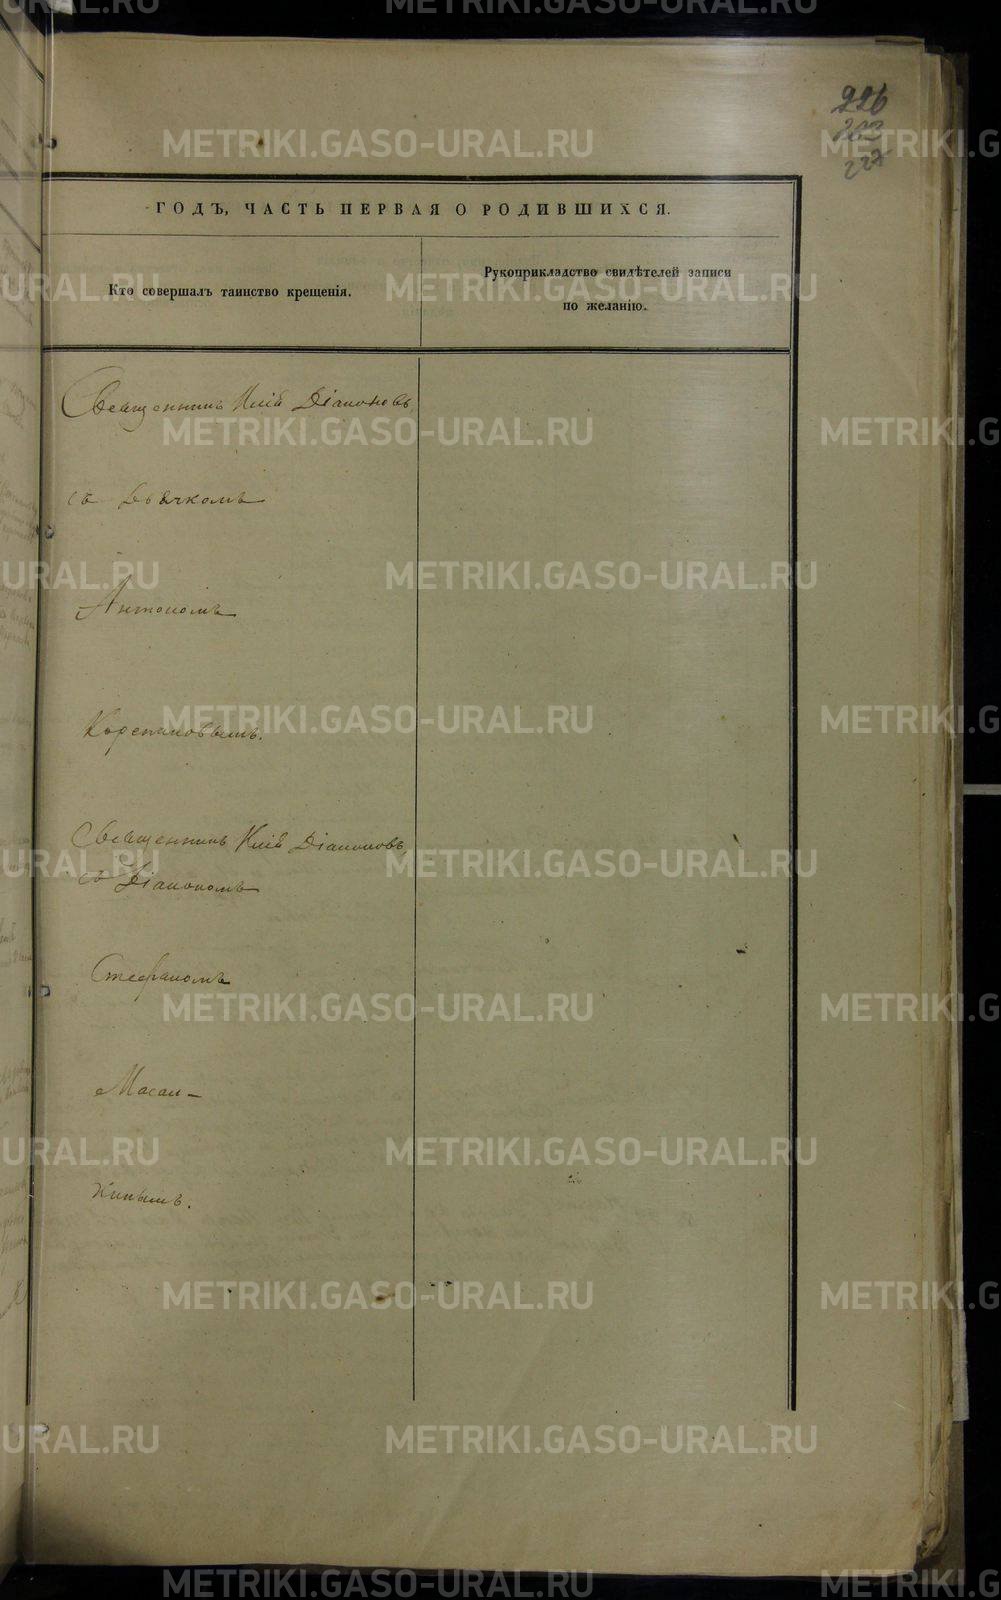 226
203
227
ГОДЪ, ЧАСТЬ ПЕРВАЯ О РОДИВШИХСЯ.
Кто совершалъ таинство крещенія.
Рукоприкладство свидѣтелей записи
по желанію.
Священникъ Илія Діаконовъ
съ Дьячкомъ
Антономъ
Корепановымъ.
Священникъ Илія Діаконовъ
съ Діакономъ
Стефаномъ
Масал-
кинымъ.
METRIKI.GASO-URAL.RU